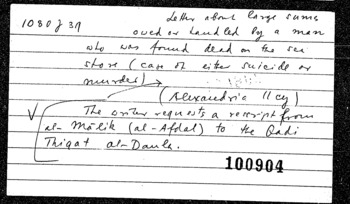 1080 J 39
Letter about large sums
owed or handled by a man
who was found dead on the sea
shore (case of either suicide or
murder)
(Alexandria 11 cy)
The writer requests a rescript from
al-Malik (al-Afdal) to the Qadi
Thiqat al-Daula.
100904